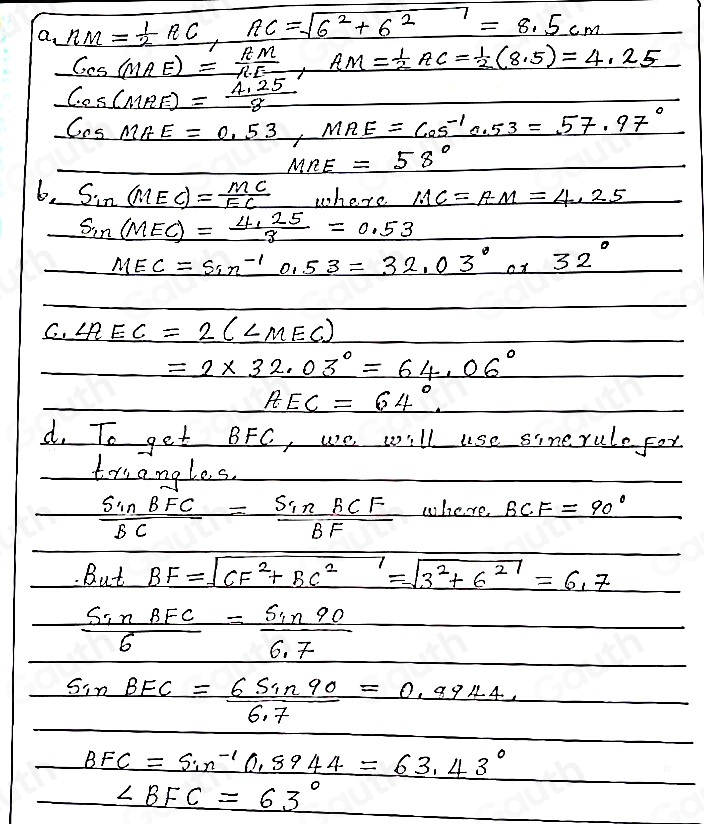 a. AM = 1/2 AC, AC = √(6² + 6²) = 8.5 cm
Cos (MAE) = AM/AE, AM = 1/2 AC = 1/2 (8.5) = 4.25
Cos (MAE) = 4.25/8
Cos MAE = 0.53, MAE = Cos⁻¹ 0.53 = 57.97°
MAE = 58°
b. Sin (MEC) = MC/EC where MC = AM = 4.25
Sin (MEC) = 4.25/8 = 0.53
MEC = Sin⁻¹ 0.53 = 32.03° or 32°
C. ∠AEC = 2 (∠MEC)
= 2 × 32.03° = 64.06°
AEC = 64°.
d. To get BFC, we will use sine rule for
triangles.
Sin BFC/BC = Sin BCF/BF where BCF = 90°
But BF = √(CF² + BC²) = √(3² + 6²) = 6.7
Sin BFC/6 = Sin 90/6.7
Sin BFC = 6 Sin 90/6.7 = 0.8944.
BFC = Sin⁻¹ 0.8944 = 63.43°
∠BFC = 63°